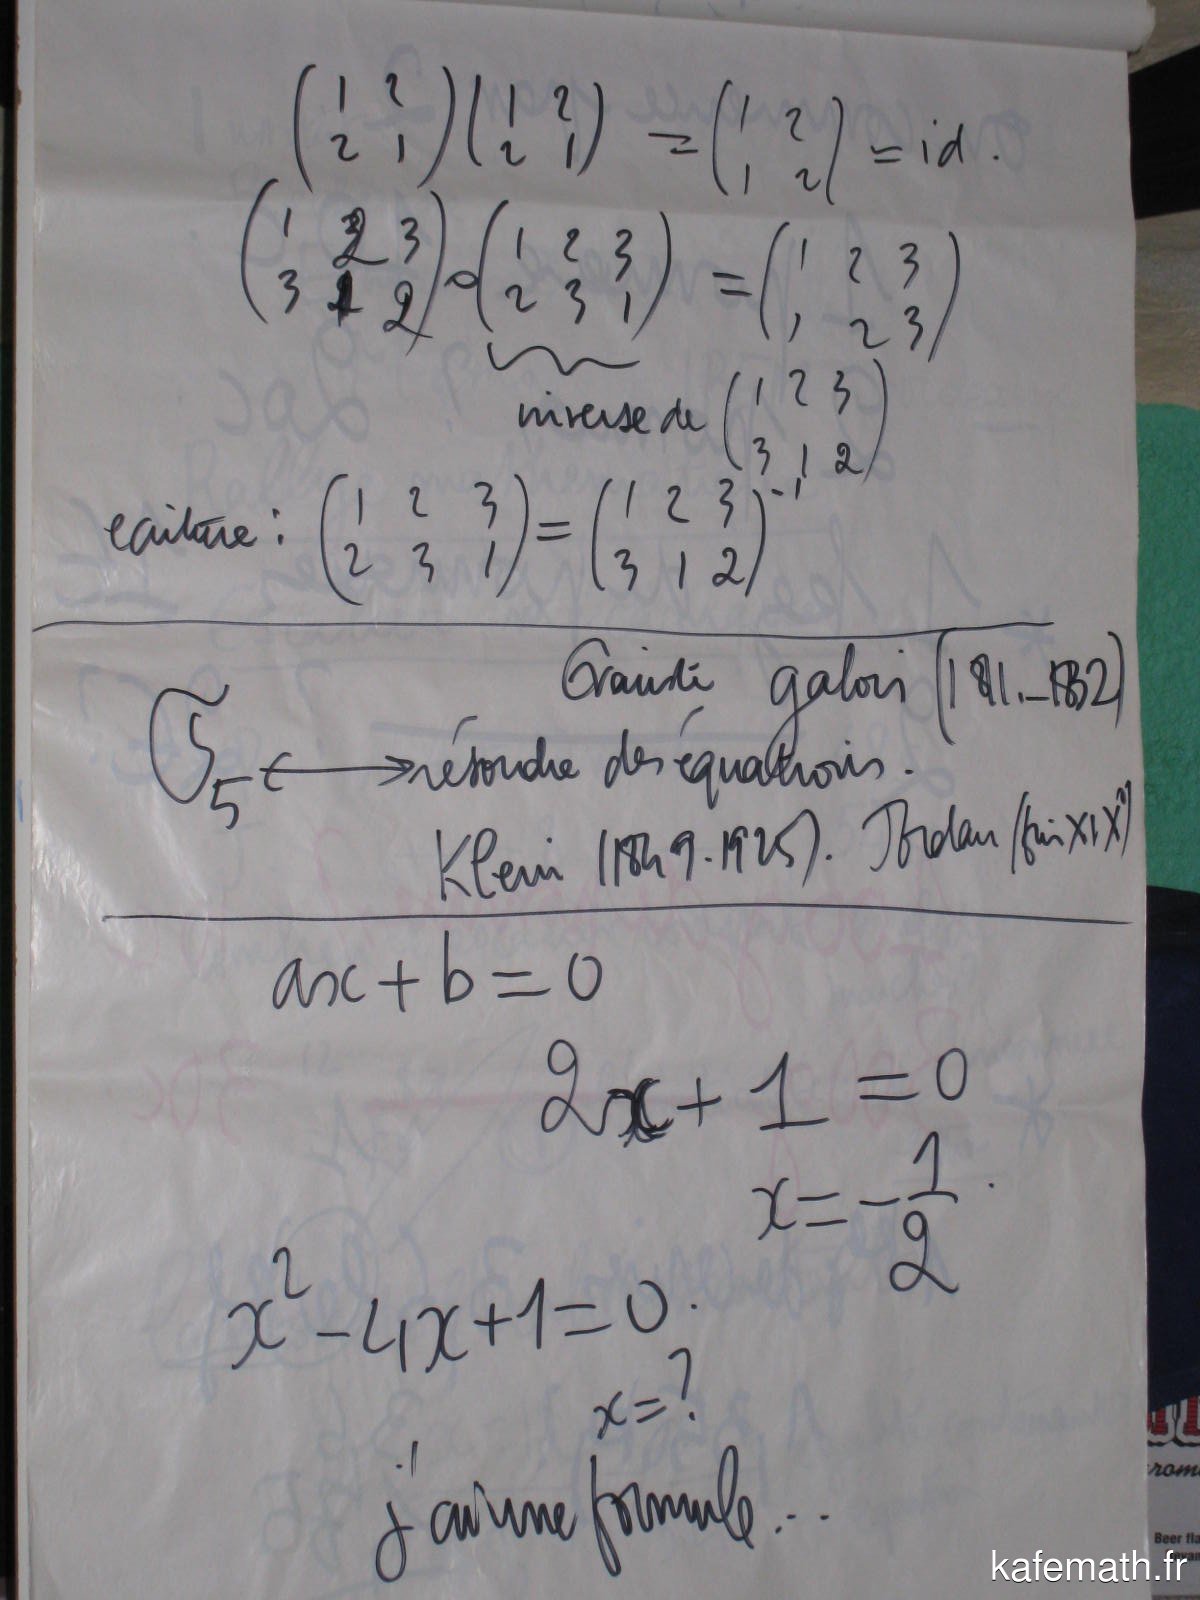 (1 2 / 2 1)(1 2 / 2 1) = (1 2 / 1 2) = id.
(1 2 3 / 3 1 2) ∘ (1 2 3 / 2 3 1) = (1 2 3 / 1 2 3)
inverse de (1 2 3 / 3 1 2)
écriture : (1 2 3 / 2 3 1) = (1 2 3 / 3 1 2)⁻¹
galois (1811-1832)
5 résoudre des équations.
Klein (1849-1925). Jordan (fin XIXᵉ)
ax + b = 0
2x + 1 = 0
x = -1/2.
x² - 4x + 1 = 0.
x = ?
j'ai une formule...
Beer fla
kafemath.fr